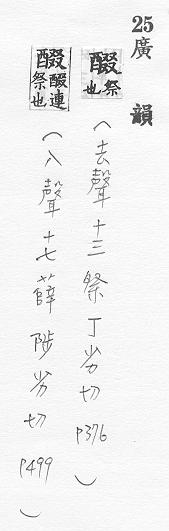 25廣韻
醊祭也
（去聲十三祭丁劣切P376）
醊醊連祭也
（入聲十七薛陟劣切P499）